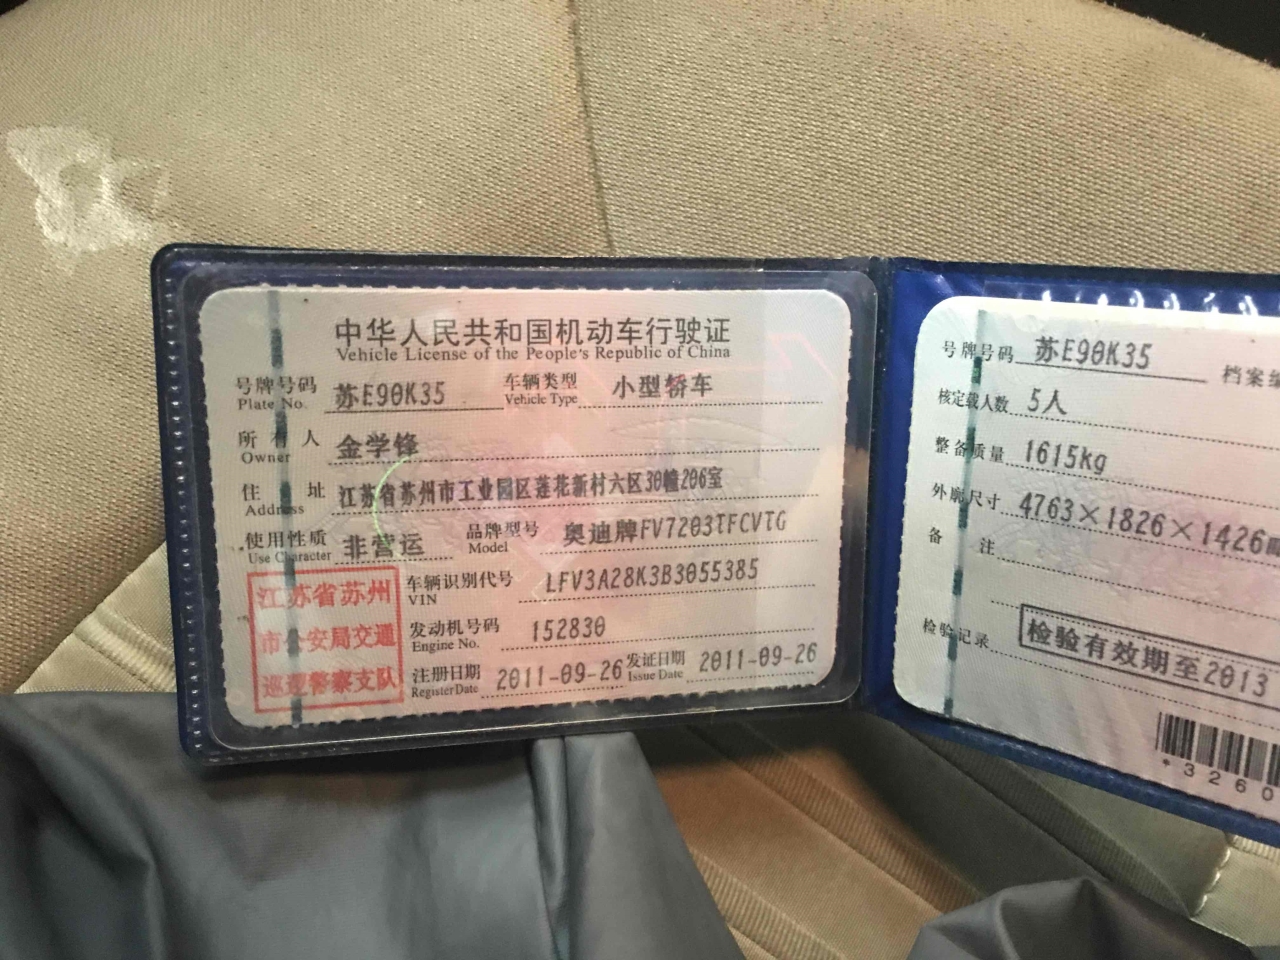 中华人民共和国机动车行驶证
Vehicle License of the People's Republic of China
号牌号码 苏E90K35 车辆类型 小型轿车
Plate No. Vehicle Type
所有人 金学锋
Owner
住址 江苏省苏州市工业园区莲花新村六区30幢206室
Address
使用性质 非营运 品牌型号 奥迪牌FV7203TFCVTG
Use Character Model
江苏省苏州
市公安局交通
巡逻警察支队
车辆识别代号 LFV3A28K3B3055385
VIN
发动机号码 152830
Engine No.
注册日期 2011-09-26 发证日期 2011-09-26
Register Date Issue Date
号牌号码 苏E90K35 档案编
核定载人数 5人
整备质量 1615kg
外廓尺寸 4763×1826×1426
备注
检验记录 检验有效期至2013
*3260